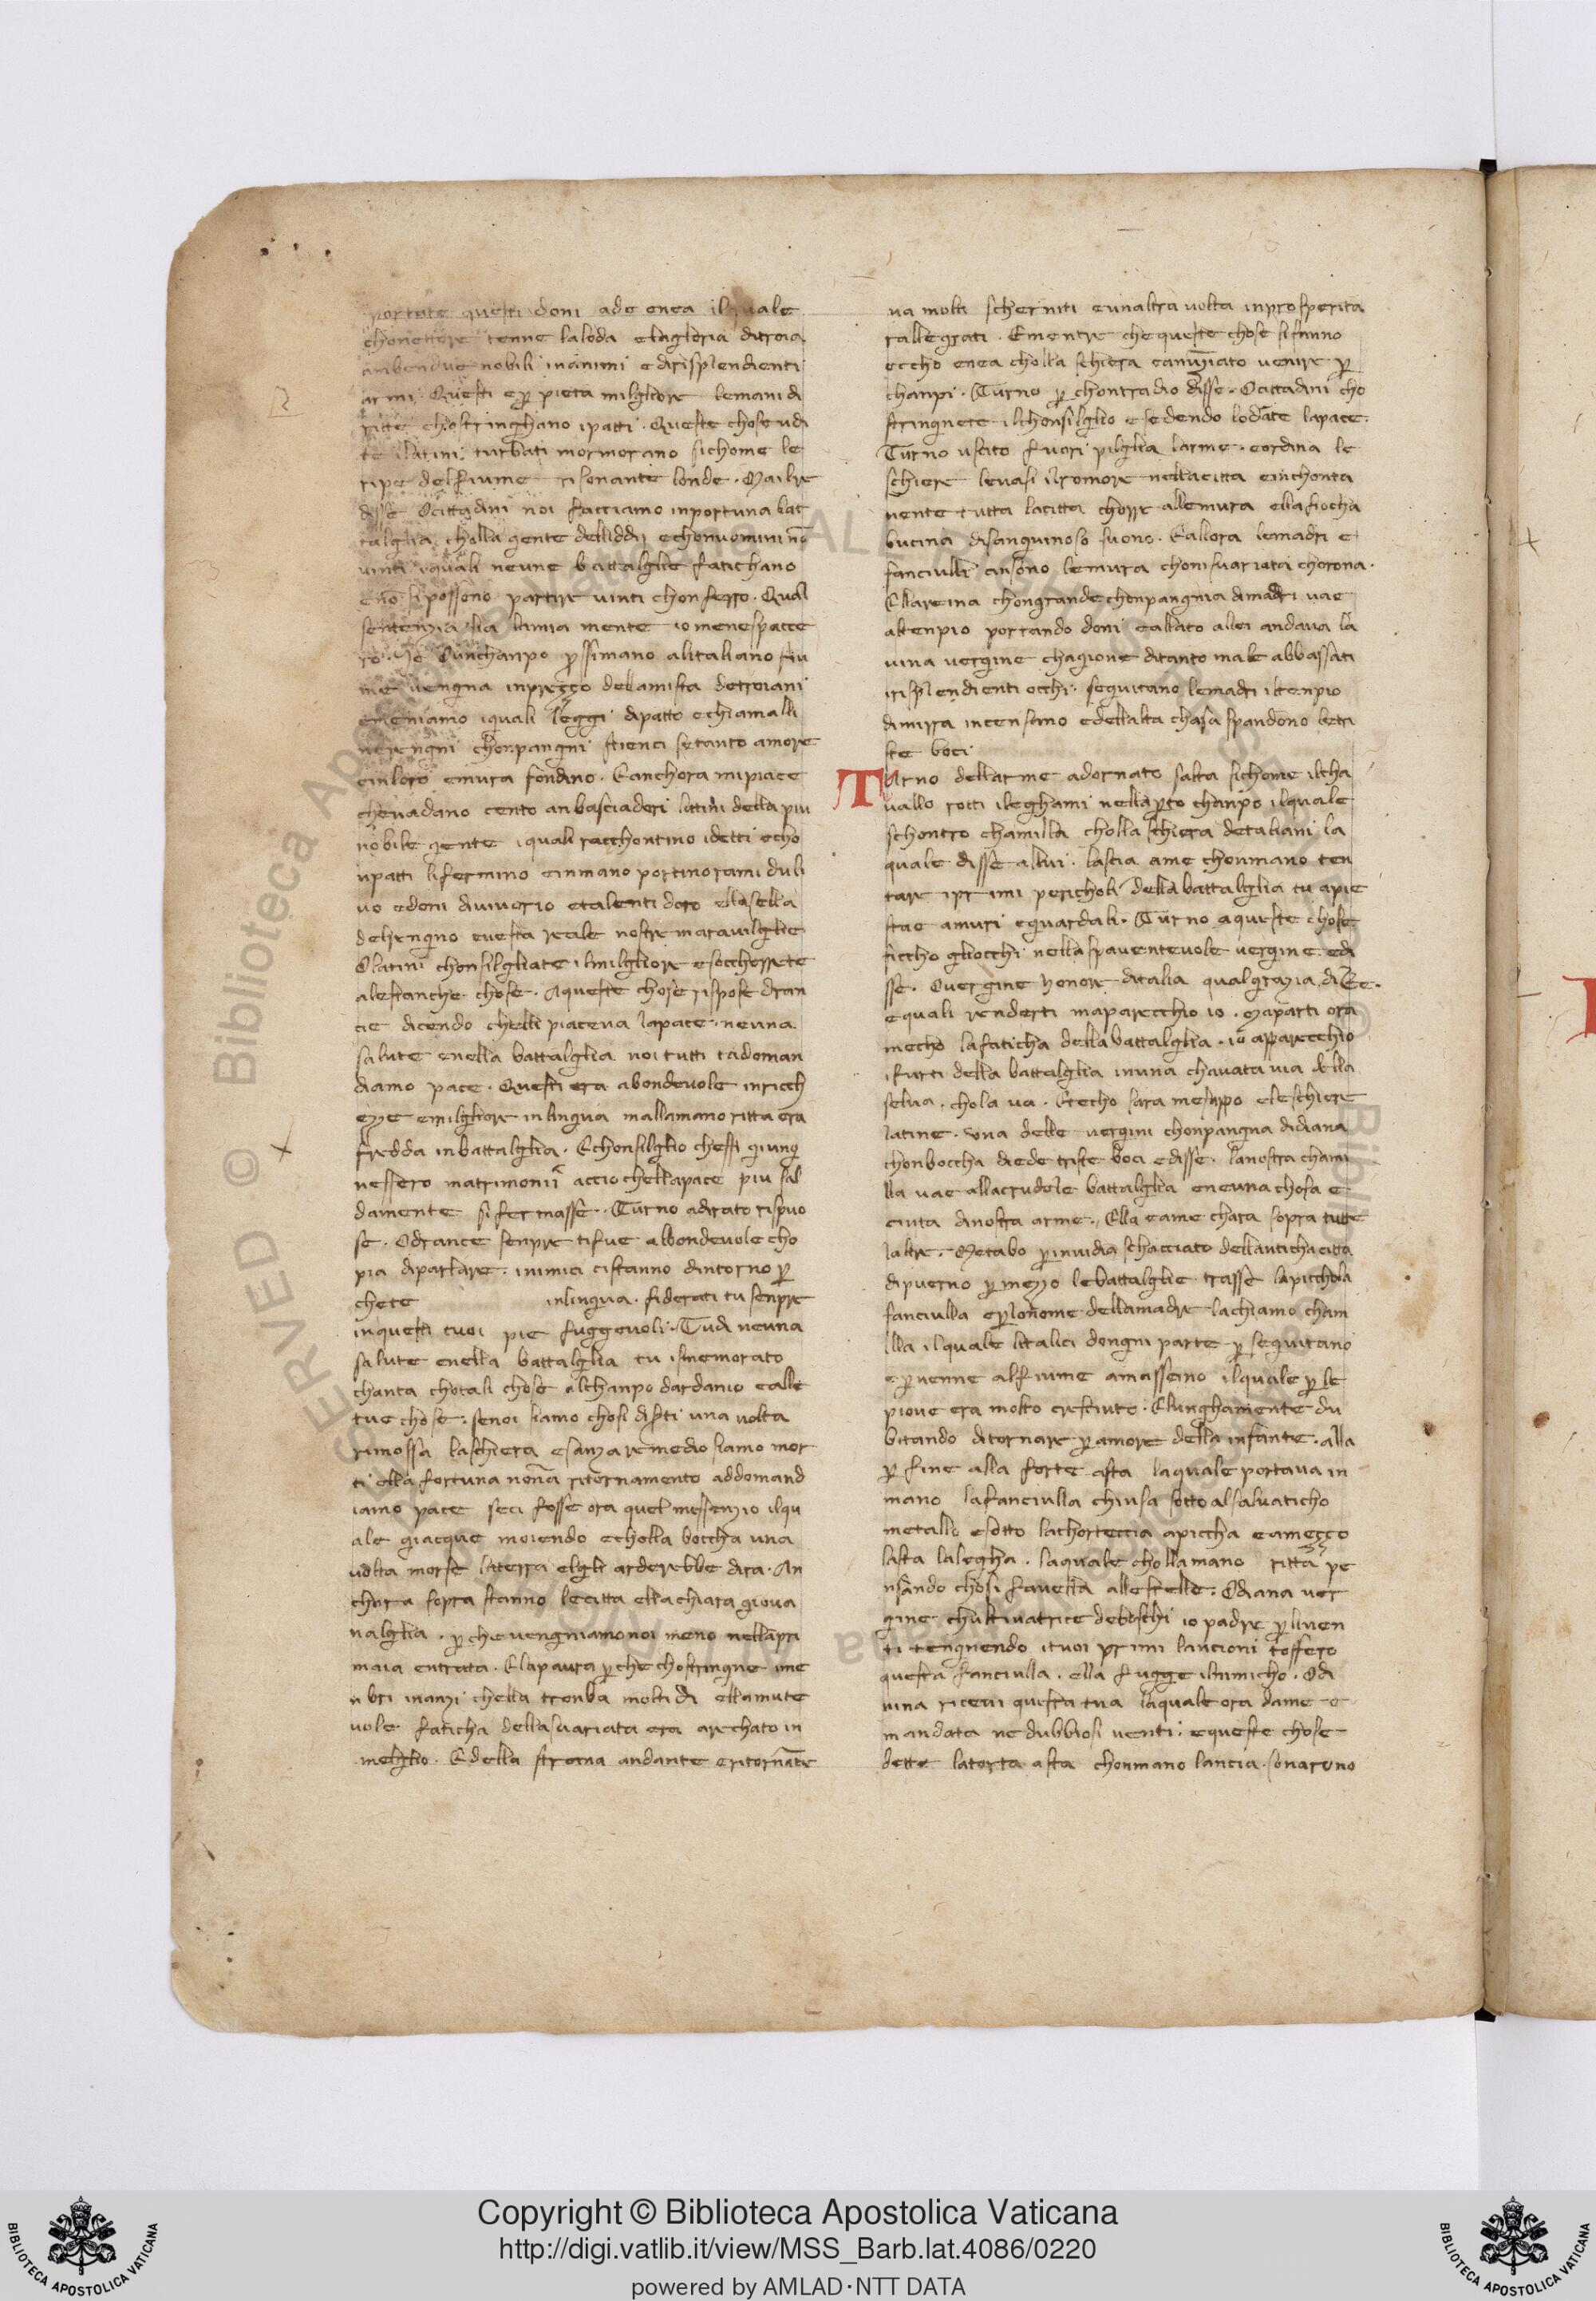 portate questi doni ad enea ilquale
chonettore tenne laloda elagloria ditroia
anbendue nobili inanimi edirisplendienti
armi. Questi e p pieta milgliore lemani di
ritte chostringhano ipatti. Queste chose udi
te ilatini turbati mormorano sichome le
ripe delfiume risonante londe. Mailre
disse Ocittadini noi facciamo inportuna bat
talglia cholla gente dellidij echonuomini nō
uinti iquali neune battalglie fatichano
enō sipossono partire uinti chon ferro. Qual
sentenzia sia lamia mente io menespacce
ro. Ho Ounchanpo pssimano alitaliano fiu
me uengna inprezzo dellamista detroiani
eneniamo iquali leggi dipatto echiamalli
nerengni chonpangni stienci setanto amore
einloro emura fondino. Eanchora mipiace
chevadano cento anbasciadori latini della piu
nobile gente iquali racchontino idetti echo
npatti lifermino einmano portinorami duli
uo edoni diuiuorio etalenti doro ellasella
delrengno euesta reale nostre marauilglie
Olatini chonsilgliate ilmilgliore esocchorrete
alestanche chose. Aqueste chose rispose dran
cie dicendo chelli piaceua lapace. neuna
salute enella battalglia noi tutti tadoman
diamo pace. Questi era abondeuole inricch
ezze emilgliore inlingua mallamano ritta era
fredda inbattalglia. Echonsilglio chessi giung
nessero matrimonii accio chellapace piu sal
damente sifermasse. Turno adirato rispuo
se. Odrance senpre tifue abbondeuole cho
pia diparlare. inimici cistanno dintorno p
chete inlingua. fiderati tu senpre
inquesti tuoi pie fuggeuoli. Tudi neuna
salute enella battalglia tu ismemorato
chanta chotali chose alchanpo dardanio ealle
tue chose. senoi siamo chosi disti una uolta
rimossa laschiera esanza remedio siamo mor
ti ella fortuna nona ritornamento addomand
iamo pace seci fosse ora quel messenzio ilqu
ale giacque morendo echolla boccha una
uolta morse laterra elgli arderebbe dira. An
chora sopra stanno lecitta ellachiara gioua
nalglia. pche uengniamonoi meno nellapri
maia entrata. Elapaura pche chostringne ime
nbri inanzi chella tronba molti di ellamute
uole faticha dellasuariata era arechato in
melglio. Edella strana andante eritornāte
ua molti scherniti eunaltra uolta inprosperita
rallegrati. Ementre che queste chose sifanno
eccho enea cholla schiera eanunziato uenire p
chanpi. Turno p chontradio disse. Ocittadini cho
stringnete ilchonsilglio esedendo lodate lapace.
Turno uscito fuori pilglia larme. eordina le
schiere leuasi ilromore nellacitta einchonta
nente tutta lacitta chorre allemura ellafiocha
bucina disanguinoso suono. Eallora lemadri e
fanciulli ansono lemura choni suariata chorona.
Ellareina chongrande chonpangnia dimadri uae
altenpio portando doni eallato allei andaua la
uina uergine chagione ditanto male abbassati
irisplendienti occhi. seguitano lemadri iltenpio
dimirra incensano edellalta chasa spandono letri
ste boci
Turno dellarme adornato salta sichome ilcha
uallo rotti ileghami nellapto chanpo ilquale
schontro chamilla cholla schiera detaliani la
quale disse allui. lascia ame chonmano ten
tare iprimi pericholi della battalglia tu apie
stae amuri eguardali. Turno aqueste chose
ficcho gliocchi nella spauenteuole uergine. edi
sse. Ouergine honore ditalia qual grazia dire.
equali renderti maparecchio io. Maparti ora
mecho lafaticha della battalglia. io apparecchio
ifurti della battalglia inuna chauata uia della
selua. chola ua. Etecho sara mesappo eleschiere
latine. Vna delle uergini chonpangna didiana
chonboccha diede triste boci edisse. lanostra chami
lla uae allacrudele battalglia eneuna chosa e
cinta dinostra arme. Ella eame chara sopra tutte
laltre. Metabo pinuidia schacciato dellantichacitta
dipuerno pmezzo lebattalglie trasse lapicchola
fanciulla eplonome dellamadre lachiamo cham
illa ilquale litalici dongni parte p seguitano
epuenne alfiume amasseino ilquale ple
pioue era molto cresciuto. Elunghamente du
bitando ditornare pamore della infante. alla
p fine alla forte asta laquale portaua in
mano lafanciulla chiusa sotto alsaluaticho
metallo esotto lachorteccia apiccha eamezzo
lasta lalegha. laquale chollamano ritta pe
nsando chosi fauella allestelle. Odiana uer
gine chultiuatrice deboschi io padre pliuen
ti tengnendo ituoi primi lancioni toffero
questa fanciulla. ella fugge ilnimicho. Odi
uina riceui questa tua laquale ora dame e
mandata ne dubbiosi uenti. equeste chose
dette latorta asta chonmano lancia. sonarono
Copyright © Biblioteca Apostolica Vaticana
http://digi.vatlib.it/view/MSS_Barb.lat.4086/0220
powered by AMLAD·NTT DATA
BIBLIOTECA APOSTOLICA VATICANA
BIBLIOTECA APOSTOLICA VATICANA